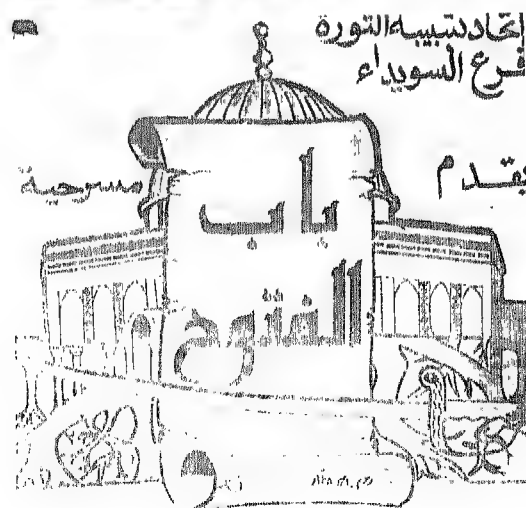 إتحاد شبيبة الثورة
فرع السويداء
يقدم مسرحية
باب
الفتوح